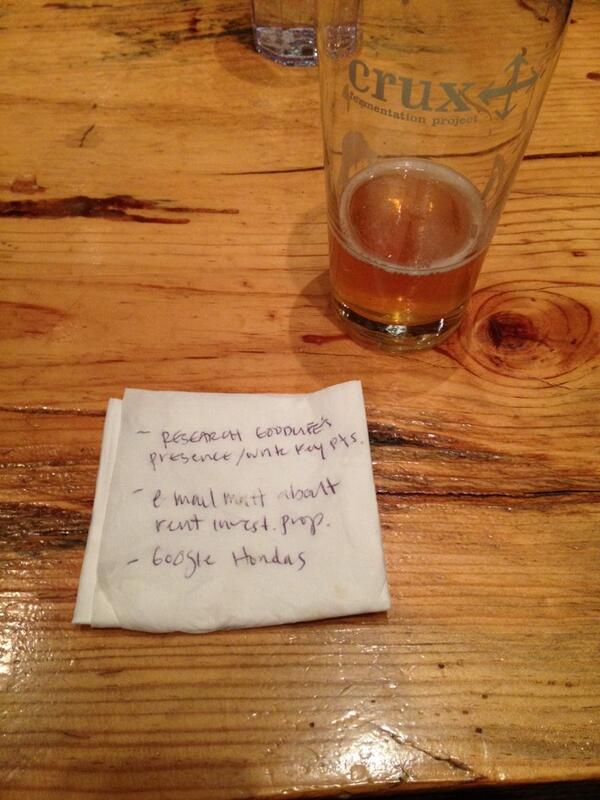 crux
fermentation project
- RESEARCH GOODLIFE'S
presence/write key pts.
- e-mail matt about
rent invest. prop.
- Google Hondas